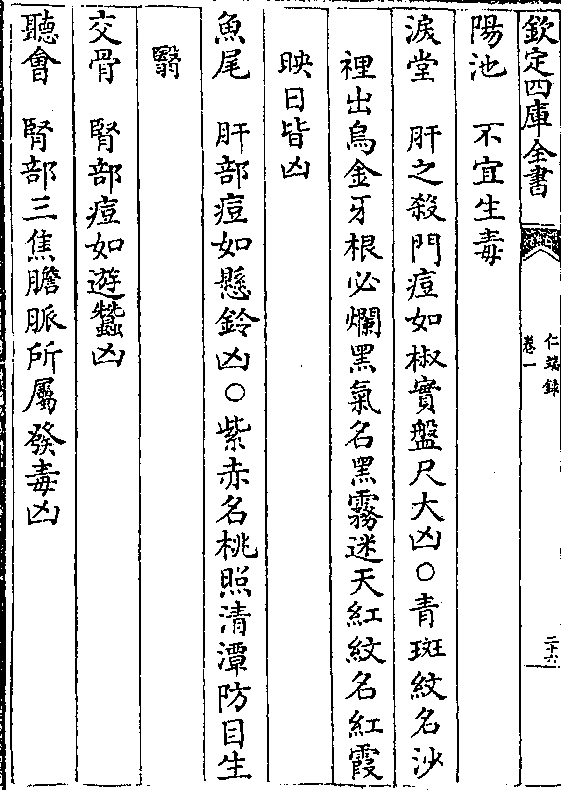 欽定四庫全書
仁端録
卷一
二十六
陽池　不宜生毒
淚堂　肝之殺門痘如椒實盤尺大凶○青斑紋名沙
裡出烏金牙根必爛黑氣名黑霧迷天紅紋名紅霞
映日皆凶
魚尾　肝部痘如懸鈴凶○紫赤名桃照清潭防目生
翳
交骨　腎部痘如遊蠶凶
聽會　腎部三焦膽脈所屬發毒凶